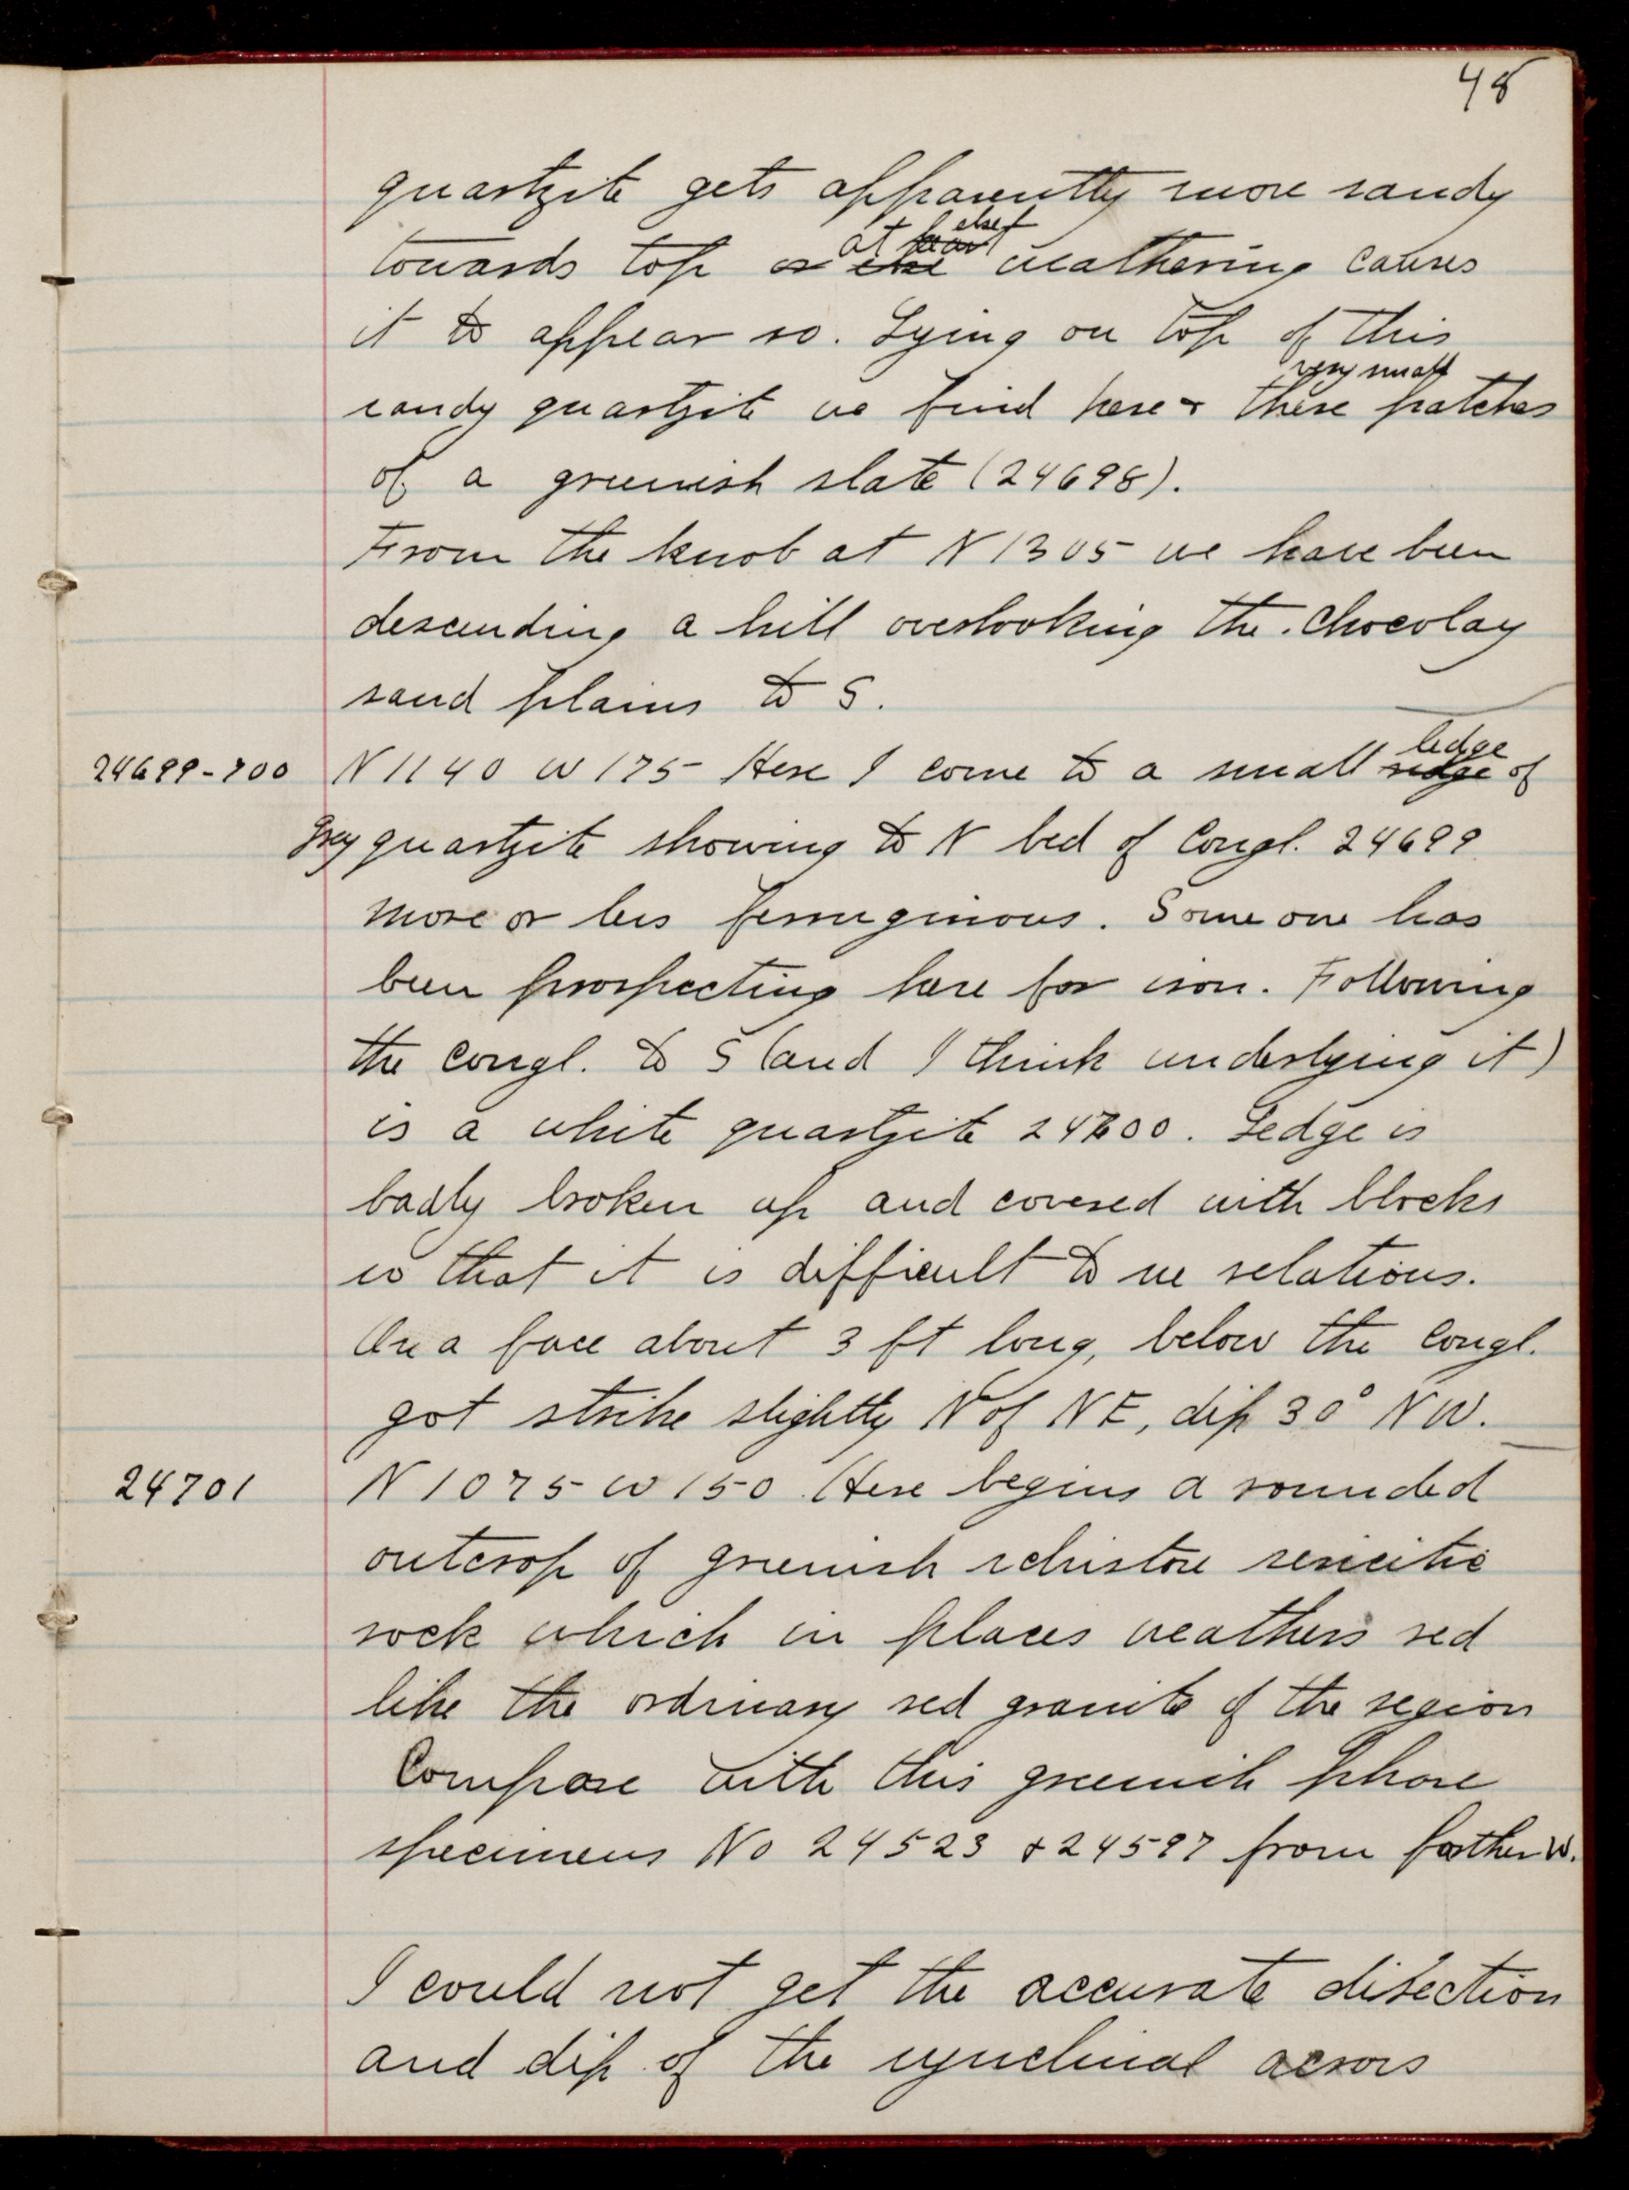 48
quartzite gets apparently more sandy
at least else
towards top or else weathering causes
it to appear so. Lying on top of this
very small
sandy quartzite we find here + there patches
of a greenish slate (24698).
From the knob at N1305 we have been
descending a hill overlooking the Chocolay
sand plains to S.
ledge
24699-700 N1140 W175 Here I come to a small ridge of
grey quartzite showing to N bed of Congl. 24699
more or less ferruginous. Some one has
been prospecting here for iron. Following
the Congl. to S (and I think underlying it)
is a white quartzite 24700. Ledge is
badly broken up and covered with blocks
so that it is difficult to see relations.
On a face about 3 ft long, below the Congl.
got strike slightly N of NE, dip 30° NW.
24701 N1075 W150 Here begins a rounded
outcrop of greenish schistose sericitic
rock which in places weathers red
like the ordinary red granite of the region
Compare with this greenish phase
specimens No 24523 + 24597 from farther W.
I could not get the accurate direction
and dip of the synclinal across